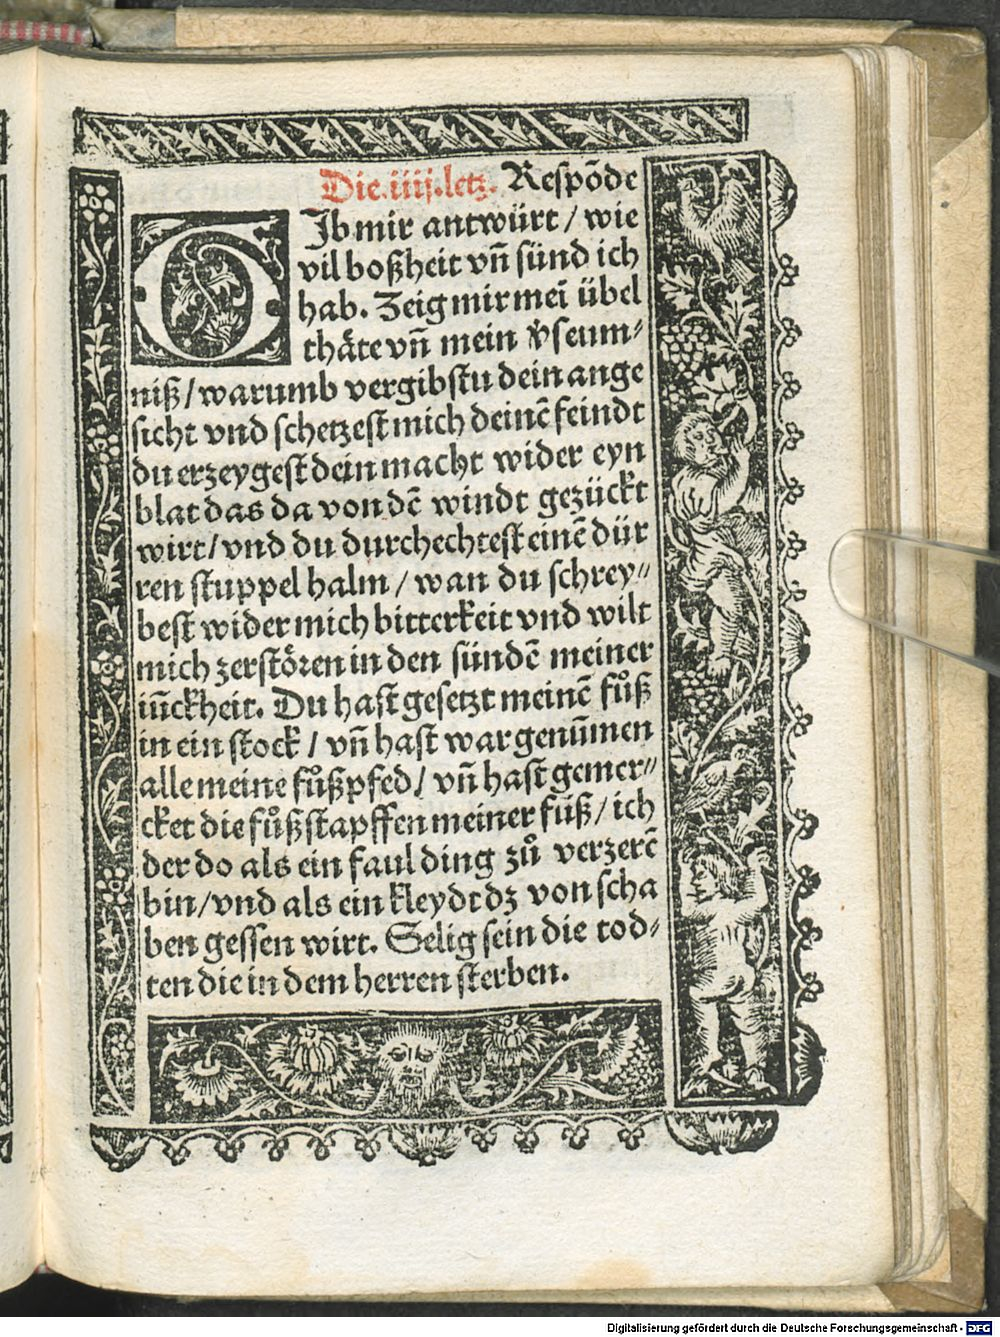 Die.iiij.letz. Respōde
GJb mir antwürt / wie
vil boßheit vn̄ sünd ich
hab. Zeig mir mei᷑n übel
thåte vn̄ mein v̊seum⸗
niß / warumb vergibstu dein ange
sicht vnd schetzest mich deinē feindt
du erzeygest dein macht wider eyn
blat das da von dē windt gezückt
wirt / vnd du durchechtest einē dür
ren stuppel halm / wan du schrey⸗
best wider mich bitterkeit vnd wilt
mich zerstören in den sündē meiner
iūckheit. Du hast gesetzt meinē fůß
in ein stock / vn̄ hast war genūmen
alle meine fůßpfed / vn̄ hast gemer⸗
cket die fůßstapffen meiner füß / ich
der do als ein faul ding zů verzerē
bin / vnd als ein kleydt dz von scha
ben gessen wirt. Selig sein die tod⸗
ten die in dem herren sterben.
Digitalisierung gefördert durch die Deutsche Forschungsgemeinschaft - DFG